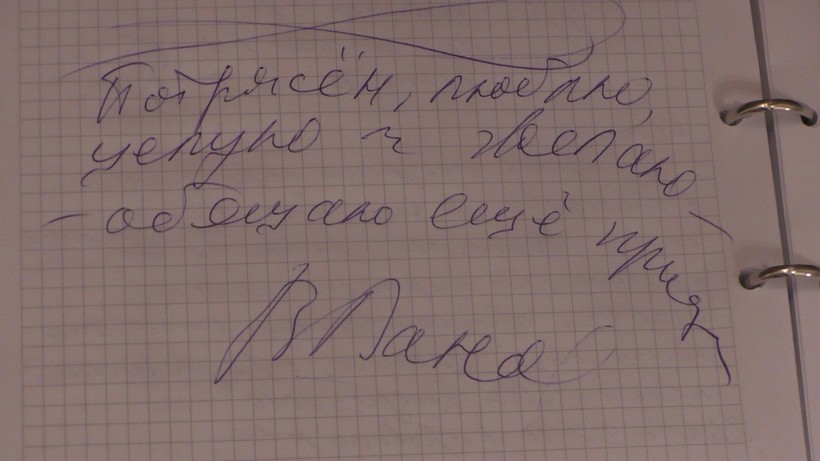 Потрясён, люблю,
целую и желаю –
– обещаю ещё приду